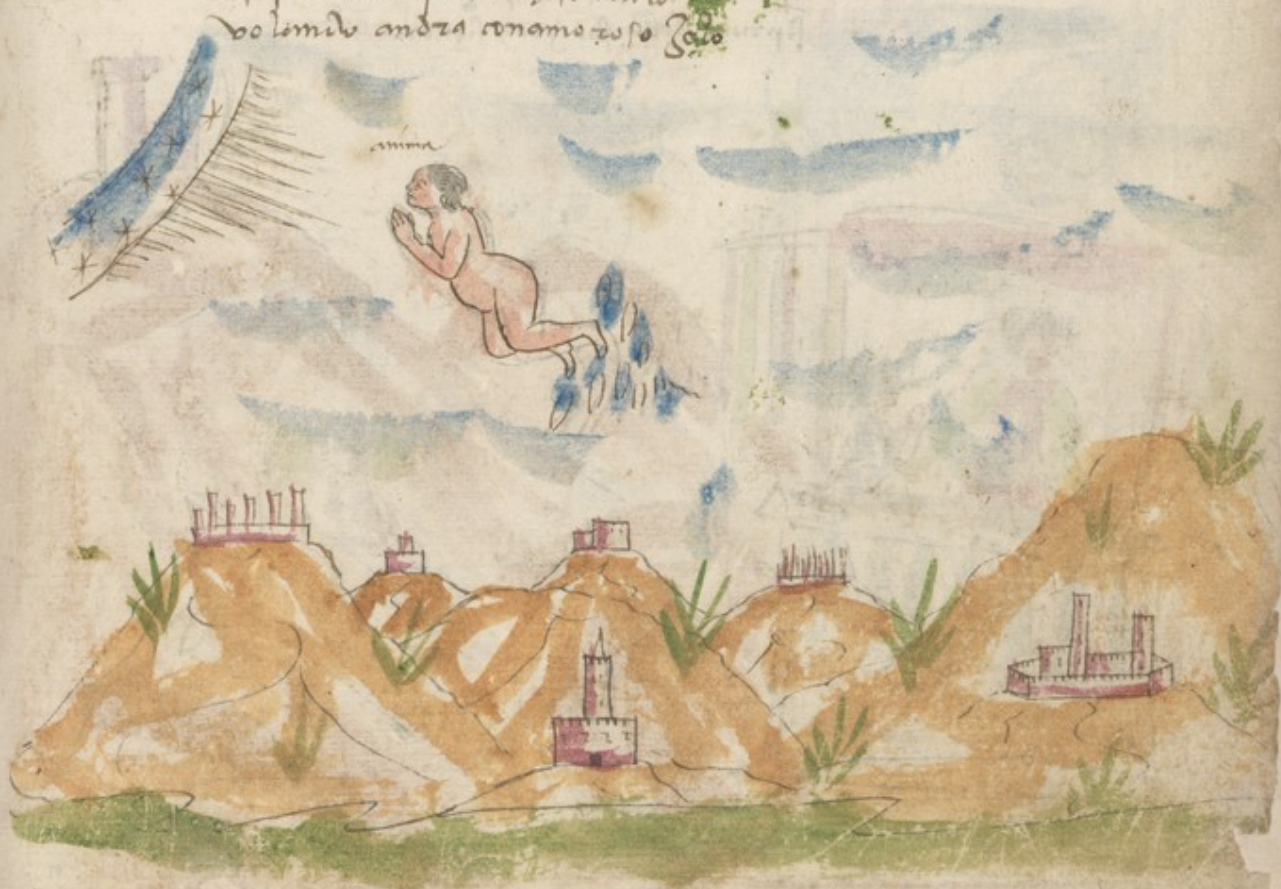 volando andra con amoroso Zelo
anima